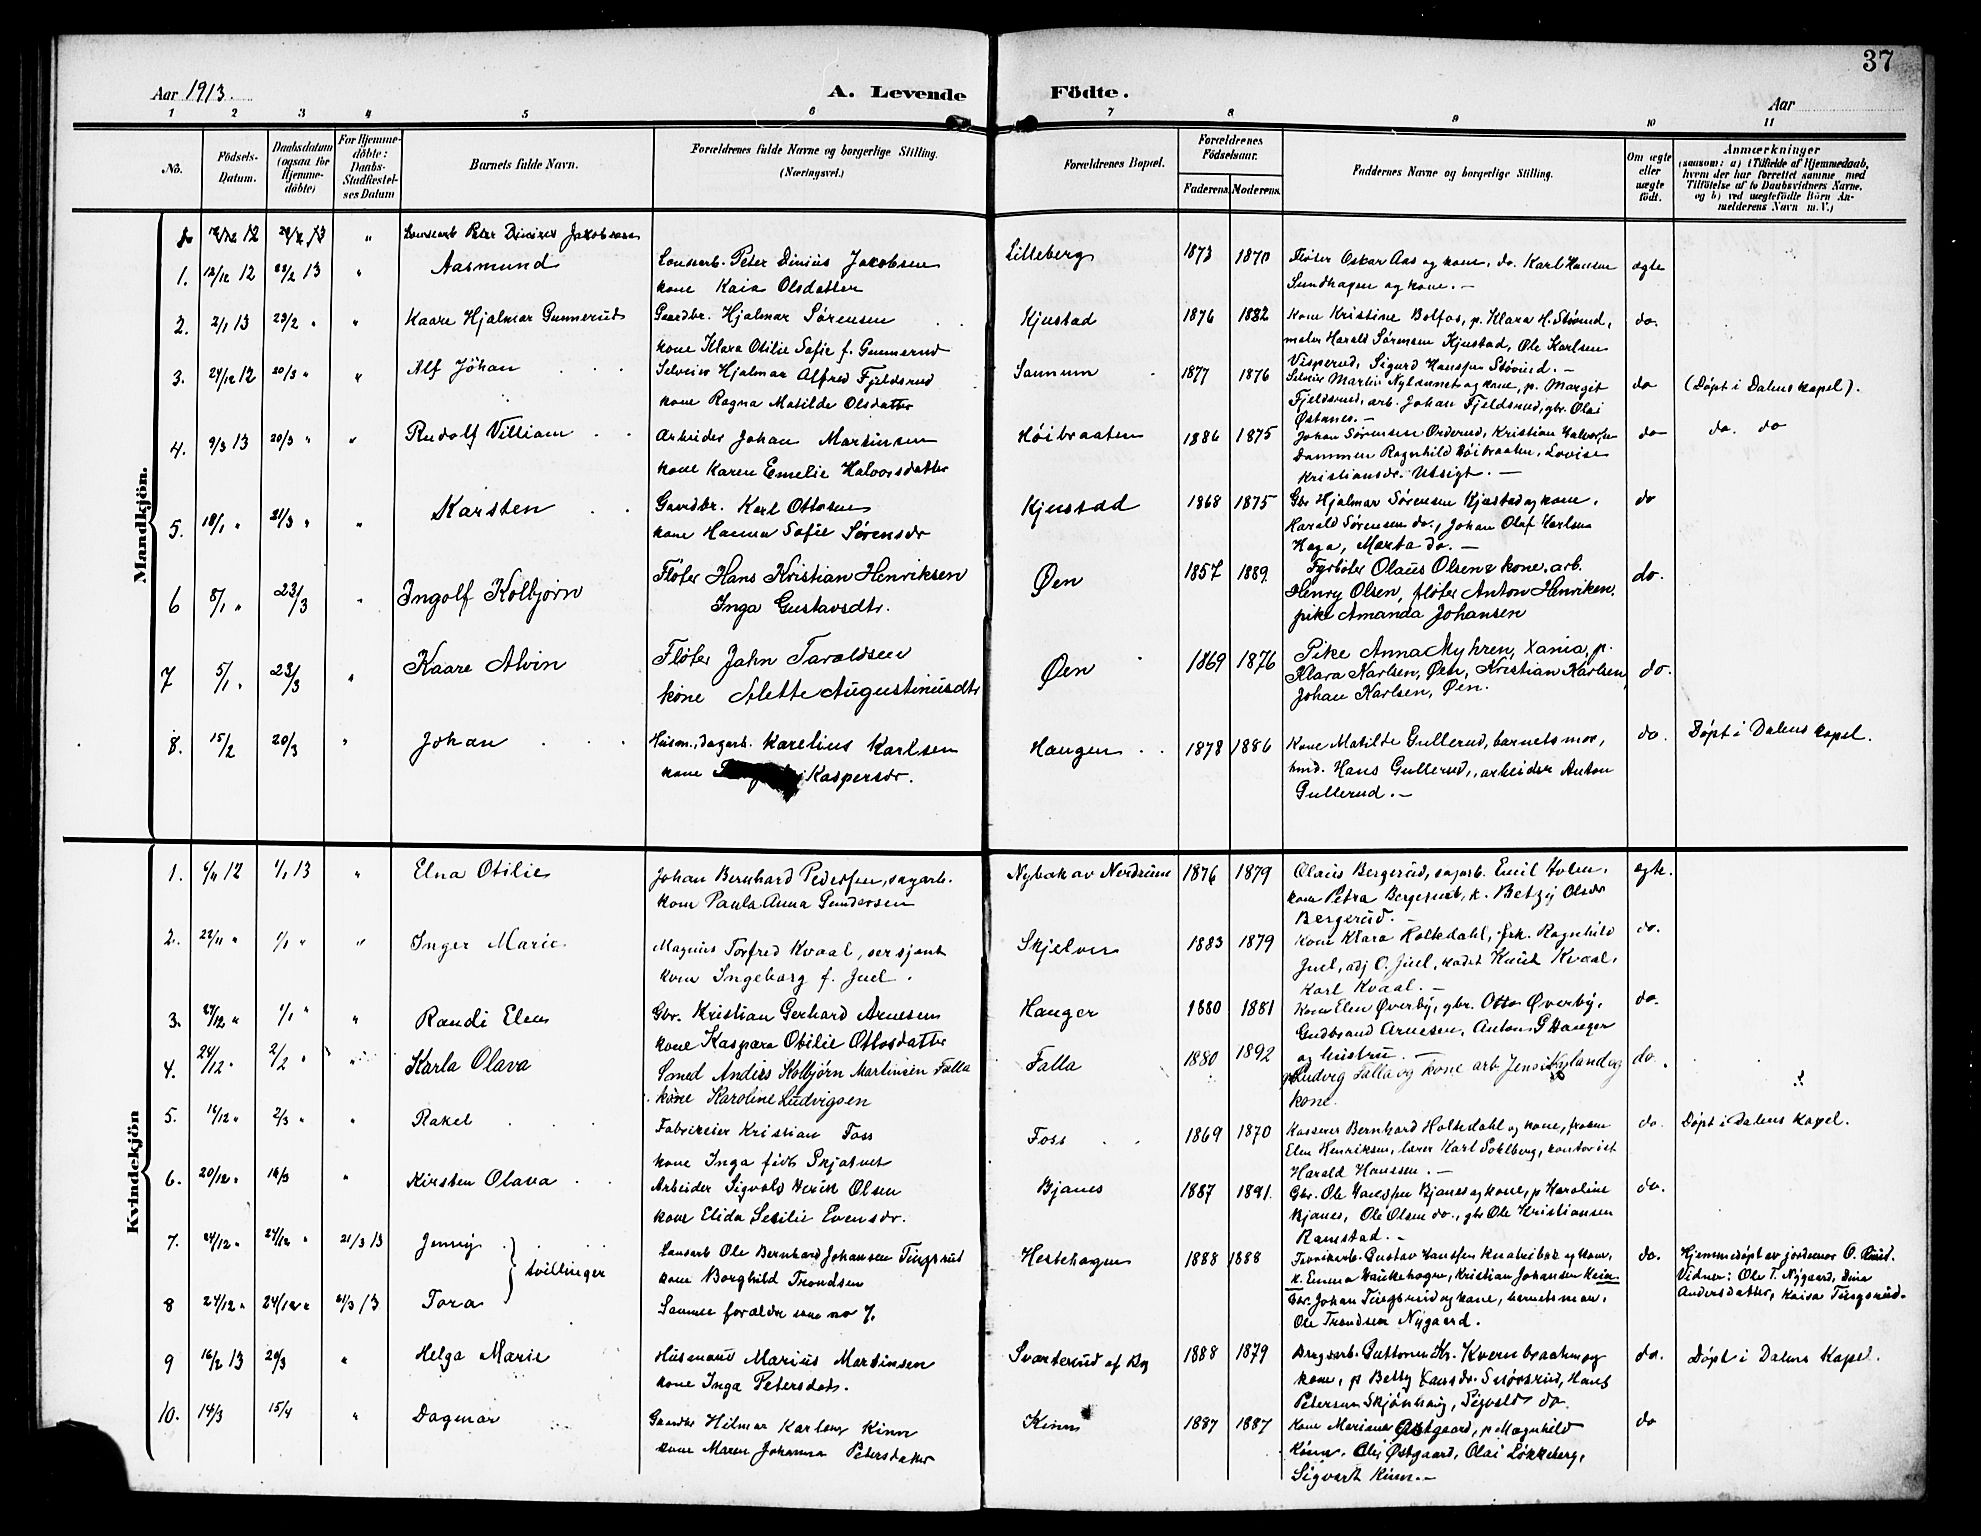 37
Aar 1913.
A. Levende Födte.
Aar
1 2 3 4 5 6 7 8 9 10 11
No.
Födsels-Datum.
Daabsdatum (ogsaa for Hjemmedöbte)
For Hjemmedöbte: Daabs-Stadfæstelses Datum
Barnets fulde Navn.
Forældrenes fulde Navne og borgerlige Stilling.
(Næringsvei.)
Forældrenes Bopæl.
Forældrenes Födselsaar.
Faderens. Moderens.
Faddernes Navne og borgerlige Stilling.
Om ægte eller uægte födt.
Anmærkninger
(saasom: a) i Tilfælde af Hjemmedaab,
hvem der har forrettet samme med
Tilföielse af to Daabsvidners Navne,
og b) ved uægtefödte Börn An-
melderens Navn m. V.)
Mandkjön.
Peter Dinius Jakobsen
1. 12/12 12 23/2 13 " Aasmund Peter Dinius Jakobsen Lilleberg 1873 1870 Fløter Oskar Aas og kone, do. Karl Hansen ægte
kone Kaia Olsdatter Sundhagen og kone. —
2. 2/1 13 23/2 " " Kaare Hjalmar Gunnerud Gaardbr. Hjalmar Sørensen Kjustad 1876 1882 Kone Kristine Bolfos, p. Klara H. Støvind, do.
kone Klara Otilie Sofie f. Gunnerud Harald Sørensen Kjustad, Ole Karlsen
Visperud, Sigurd Hanssen Støvind. —
3. 24/12 12 20/3 " " Alf Johan Selveier Hjalmar Alfred Fjeldsrud Sannum 1877 1876 Selveier Martin Nylænnet og kone, p. Margit do (Døpt i Dalens kapel).
kone Ragna Matilde Olsdatter Fjeldsrud, arb. Johan Fjeldsrud, gbr. Olai
Østanes. —
4. 9/3 13 20/3 " " Rudolf Villiam Arbeider Johan Martinsen Høibraaten 1886 1875 Johan Sørensen Orderud, Kristian Halvorsen do do. do
kone Karen Emelie Halvorsdatter Dammen Ragnhild Høibraaten, Lovise
Kristiansdr. Utsigt. —
5. 18/1 " 21/3 " " Karsten Gaardbr. Karl Ottosen Kjustad 1868 1875 Gbr Hjalmar Sørensen Kjustad og kone, do
kone Hanna Sofie Sørensdr Harald Sørensen do., Johan Olaf Karlsen
Haga, Marta do. —
6 8/1 " 23/3 " Ingolf Kolbjørn Fløter Hans Kristian Henriksen Øen 1857 1889. Fyrbøter Olaus Olsen & kone, arb. do.
Inga Gustavsdtr. Henry Olsen, fløter Anton Henriken,
pike Amanda Johansen
7 5/1 " 23/3 " Kaare Alvin Fløter John Taraldsen Øen 1869 1876 Pike Anna Myhren, Xania, p. do.
kone Alette Augustinusdtr Klara Karlsen, Øen, Kristian Karlsen,
Johan Karlsen, Øen.
8. 15/2 20/3 " Johan Husm., dagarb. Karelius Karlsen Haugen 1878 1886 Kone Matilde Gullerud, barnets mor, do. Døpt i Dalens kapel.
kone Kaspersdr. hmd. Hans Gullerud, arbeider Anton
Gullerud. —
Kvindekjön
1. 6/11 12 1/1 13 " Elna Otilie Johan Bernhard Pedersen, sagarb. Nybak av Nordrum 1876 1879 Olaus Bergerud, sagarb. Emil Holm, ægte.
kone Paula Anna Gundersen kone Petra Bergerud, k. Betzy Olsdr
Bergerud. —
2. 22/11 " 1/1 " " Inger Marie Magnus Torfred Kvaal, sersjant Skjelven 1883 1879 Kone Klara Holtedahl, frk. Ragnhild do.
kone Ingeborg f. Juel. Juel, adj O. Juel, kadet Knut Kvaal,
Karl Kvaal. —
3. 27/12 " 1/1 " " Randi Elen Gbr. Kristian Gerhard Arnesen Hanger 1880 1881 Kone Elen Øverby, gbr. Otto Øverby, do.
kone Kaspara Otilie Ottosdatter Gudbrand Arnesen, Anton G Hanger
og hustru. —
4. 24/12 " 2/2 " " Karla Olava Smed Anders Kolbjørn Martinsen Falla Falla 1880 1892 Ludvig Falla og kone arb Jens Nyland og do.
kone Karoline Ludvigsen kone.
5. 16/12 " 2/3 " " Rakel Fabrikeier Kristian Foss Foss 1869 1870 Kasserer Bernhard Holtedahl og kone, frøken do. Døpt i Dalens kapel.
kone Inga født Skjatvet Elen Henriksen, lærer Karl Sohlberg, kontorist
Harald Hanssen. —
6. 20/12 " 16/3 " Kirsten Olava Arbeider Sigvald Henrik Olsen Bjanes 1887 1891. Gbr. Ole Hanssen Bjanes og kone, p Karoline do.
kone Elida Sesilie Evensdr. Bjanes, Ole Olsen do., gbr Ole Kristiansen
Ramstad. —
7. 24/12 " 24/12 " 21/3 13 Jenny Ole Bernhard Johansen Tingsrud Hestehagen 1888 1888 Gustav Hanssen og kone, do. Hjemmedøpt av jordmor O. Rud.
tvillinger
kone Borghild Trondsen k. Emma Haukehagen, Kristian Johansen Vidner: Ole T. Nygaard, Dina
8 24/12 " 24/12 " 21/3 13 Tora Samme forældre som no 7. Gbr. Johan Tingsrud og kone, barnets mor, Andersdatter, Kaisa Tingsrud.
Ole Trondsen Nygaard.
9 16/2 13 20/3 " Helga Marie Husmand Marius Martinsen Svarterud af 1888 1879 Brugsarb. Guttorm Kr. Kvernbraaten og do. Døpt i Dalens Kapel.
kone Inga Petersdatr. kone, p Betty Hansdr. Snørsrud, Hans
Petersen Skjønhaug, Sigvald do.
10. 14/3 15/4 " Dagmar Gaardbr Hilmar Karlsen Kinn Kinn 1887 1887 Kone Mariane Østgaard, p Magnhild do
kone Maren Johanna Petersdatter Kinn, Østgaard, Olai Løkkeberg,
Sigvart Kinn. —